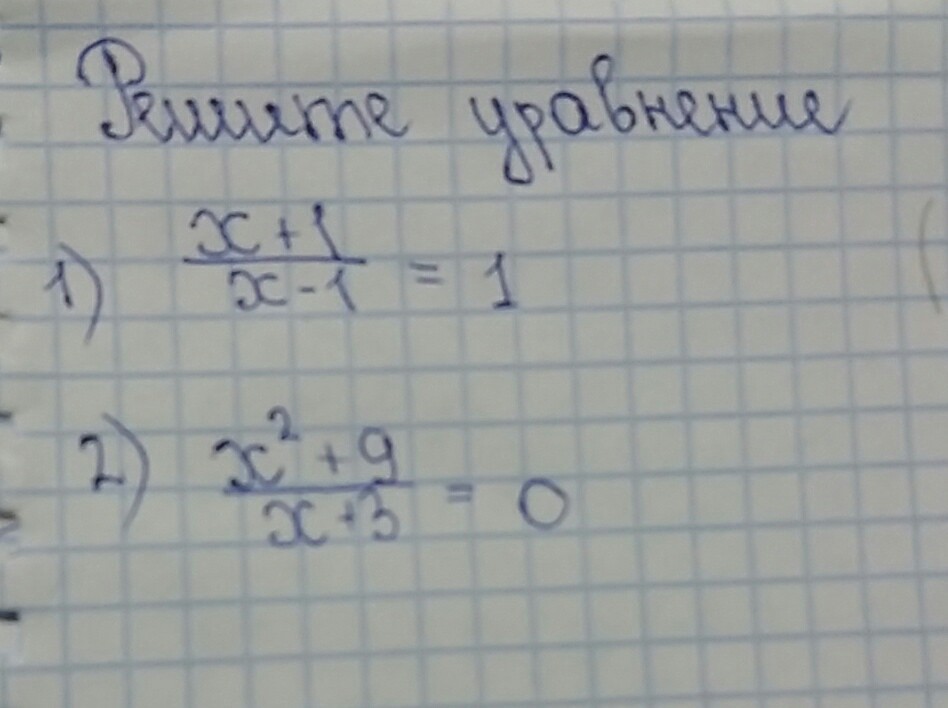 Решите уравнение
1) (x+1)/(x-1) = 1
2) (x²+9)/(x+3) = 0